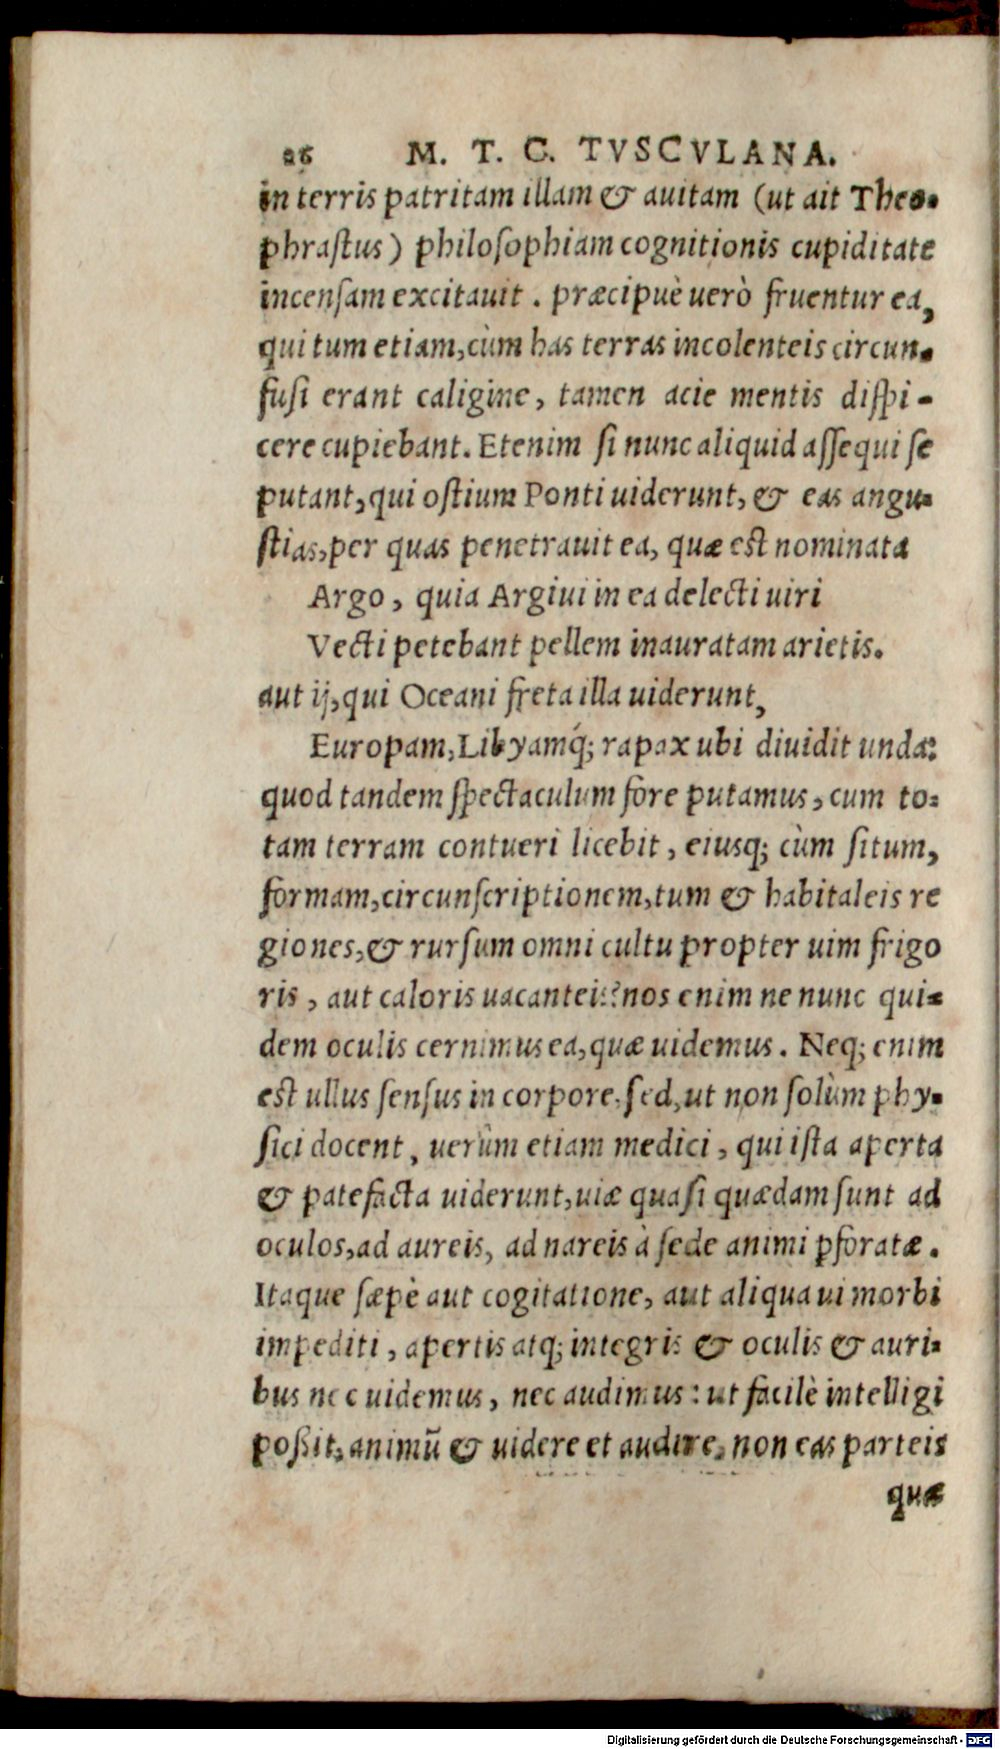 26 M. T. C. TVSCVLANA.
in terris patritam illam & auitam (ut ait Theo-
phraſtus) philoſophiam cognitionis cupiditate
incenſam excitauit. præcipuè uerò fruentur ea,
qui tum etiam, cùm has terras incolenteis circun-
fuſi erant caligine, tamen acie mentis diſpi-
cere cupiebant. Etenim ſi nunc aliquid aſſequi ſe
putant, qui oſtium Ponti uiderunt, & eas angu-
ſtias, per quas penetrauit ea, quæ est nominata
Argo, quia Argiui in ea delecti uiri
Vecti petebant pellem inauratam arietis.
aut ij, qui Oceani freta illa uiderunt,
Europam, Libyamq́; rapax ubi diuidit unda:
quod tandem ſpectaculum fore putamus, cum to-
tam terram contueri licebit, eiusq; cùm ſitum,
formam, circunſcriptionem, tum & habitaleis re
giones, & rurſum omni cultu propter uim frigo
ris, aut caloris uacanteis? nos enim ne nunc qui-
dem oculis cernimus ea, quæ uidemus. Neq; enim
est ullus ſenſus in corpore. ſed, ut non ſolùm phy-
ſici docent, uerùm etiam medici, qui iſta aperta
& patefacta uiderunt, uiæ quaſi quædam ſunt ad
oculos, ad aureis, ad nareis à ſede animi ꝑforatæ.
Itaque ſæpè aut cogitatione, aut aliqua ui morbi
impediti, apertis atq; integris & oculis & auri-
bus nec uidemus, nec audimus: ut facilè intelligi
poßit, animū & uidere et audire, non eas parteis
quæ
Digitalisierung gefördert durch die Deutsche Forschungsgemeinschaft - DFG